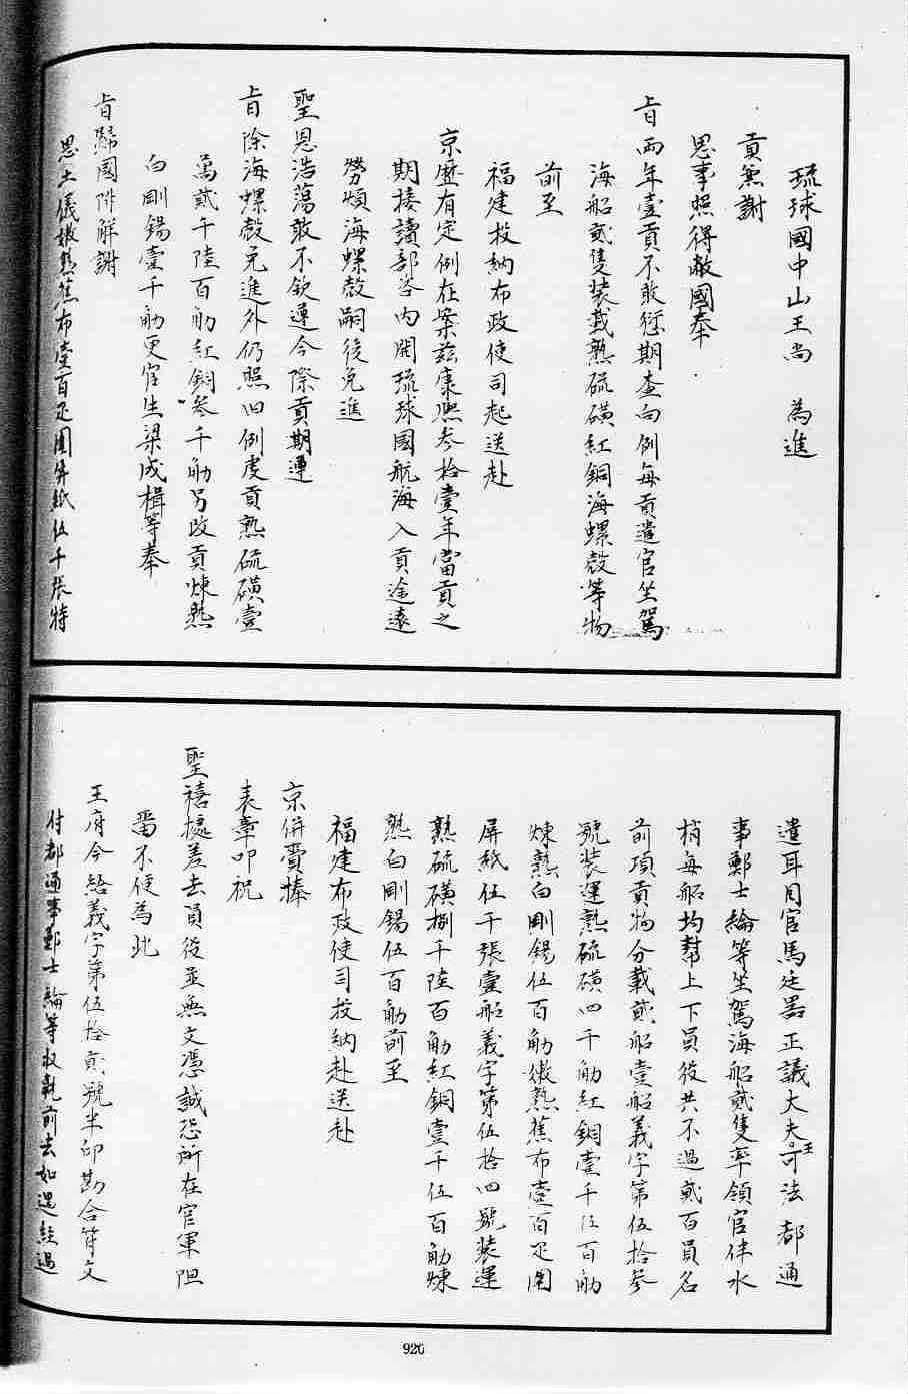 琉球國中山王尚　為進
貢兼謝
恩事照得敝國奉
旨兩年壹貢不敢愆期查向例每貢遣官坐駕
海船貳隻裝載熟硫磺紅銅海螺殼等物
前至
福建投納布政使司起送赴
京歷有定例在案茲康熙叁拾壹年當貢之
期捧讀部咨內開琉球國航海入貢途遠
勞煩海螺殼嗣後免進
聖恩浩蕩敢不欽遵今際貢期遵
旨除海螺殼免進外仍照旧例虔貢熟硫磺壹
萬貳千陸百觔紅銅叁千觔另改貢煉熟
白剛錫壹千觔更官生梁成楫等奉
旨歸國附解謝
恩土儀嫩熟蕉布壹百疋圍屏紙伍千張特
遣耳目官馬廷器正議大夫王可法都通
事鄭士綸等坐駕海船貳隻率領官伴水
梢每船均幫上下員役共不過貳百員名
前項貢物分載貳船壹船義字第伍拾參
號裝運熟硫磺四千觔紅銅壹千伍百觔
煉熟白剛錫伍百觔嫩熟蕉布壹百疋圍
屏紙伍千張壹船義字第伍拾四號裝運
熟硫磺捌千陸百觔紅銅壹千伍百觔煉
熟白剛錫伍百觔前至
福建布政使司投納赴送赴
京併賫捧
表章叩祝
聖禧據差去員役並無文憑誠恐所在官軍阻
留不便為此
王府今給義字第伍拾貳號半印勘合符文
付都通事鄭士綸等收執前去如遇經過
920